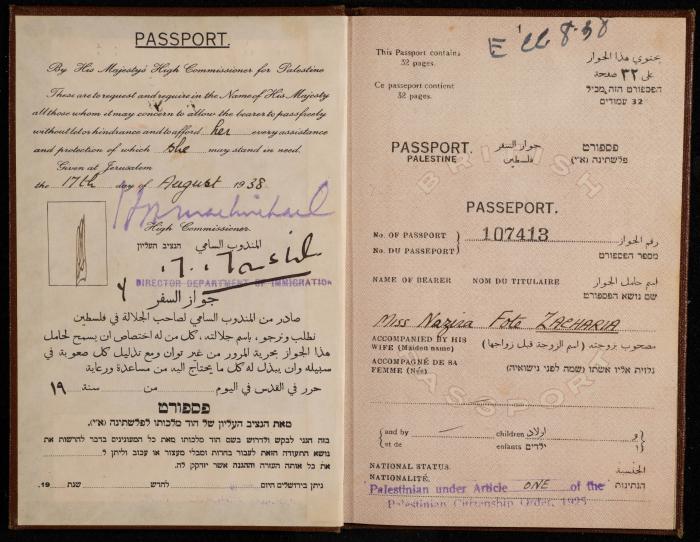 PASSPORT.
By His Majesty's High Commissioner for Palestine
These are to request and require in the Name of His Majesty
all those whom it may concern to allow the bearer to pass freely
without let or hindrance and to afford her every assistance
and protection of which she may stand in need.
Given at Jerusalem
the 17th day of August 1938
High Commissioner.
المندوب السامي הנציב העליון
DIRECTOR DEPARTMENT OF IMMIGRATION
جواز السفر
صادر من المندوب السامي لصاحب الجلالة في فلسطين
نطلب ونرجو، باسم جلالته، كل من له اختصاص ان يسمح لحامل
هذا الجواز بحرية المرور من غير توان ومع تذليل كل صعوبة في
سبيله وان يبذل له كل ما يحتاج اليه من مساعدة ورعاية
حرر في القدس في اليوم من سنة ١٩
פספורט
מאת הנציב העליון של הוד מלכותו לפלשתינה (א״י).
בזה הנני לבקש ולדרוש בשם הוד מלכותו מאת כל המעונינים בדבר להרשות את
נושא התעודה הזאת לעבור בחרות ומבלי מעצור או עכוב וליתן ל
את כל אותה העזרה וההגנה אשר יזדקק לה.
ניתן בירושלים היום לחדש שנת 19.
E 22.8.38
This Passport contains
32 pages.
يحتوي هذا الجواز
على ٣٢ صفحة
Ce passeport contient
32 pages.
הפספורט הזה מכיל
32 עמודים
PASSPORT. جواز السفر פספורט
PALESTINE فلسطين פלשתינה (א״י)
BRITISH
PASSEPORT.
No. OF PASSPORT
No. DU PASSEPORT
107413
رقم الجواز
מספר הפספורט
NAME OF BEARER NOM DU TITULAIRE
اسم حامل الجواز
שם נושא הפספורט
Miss Nazira Fota ZACHARIA
ACCOMPANIED BY HIS
WIFE (Maiden name)
مصحوب بزوجته (اسم الزوجة قبل زواجها)
ACCOMPAGNÉ DE SA
FEMME (Née)
נלוית אליו אשתו (שמה לפני נישואיה)
PASSPORT
and by children اولاد و
et de enfants ילדים ו
NATIONAL STATUS. الجنسية
NATIONALITÉ. הנתינות
Palestinian under Article ONE of the
Palestinian Citizenship Order, 1925